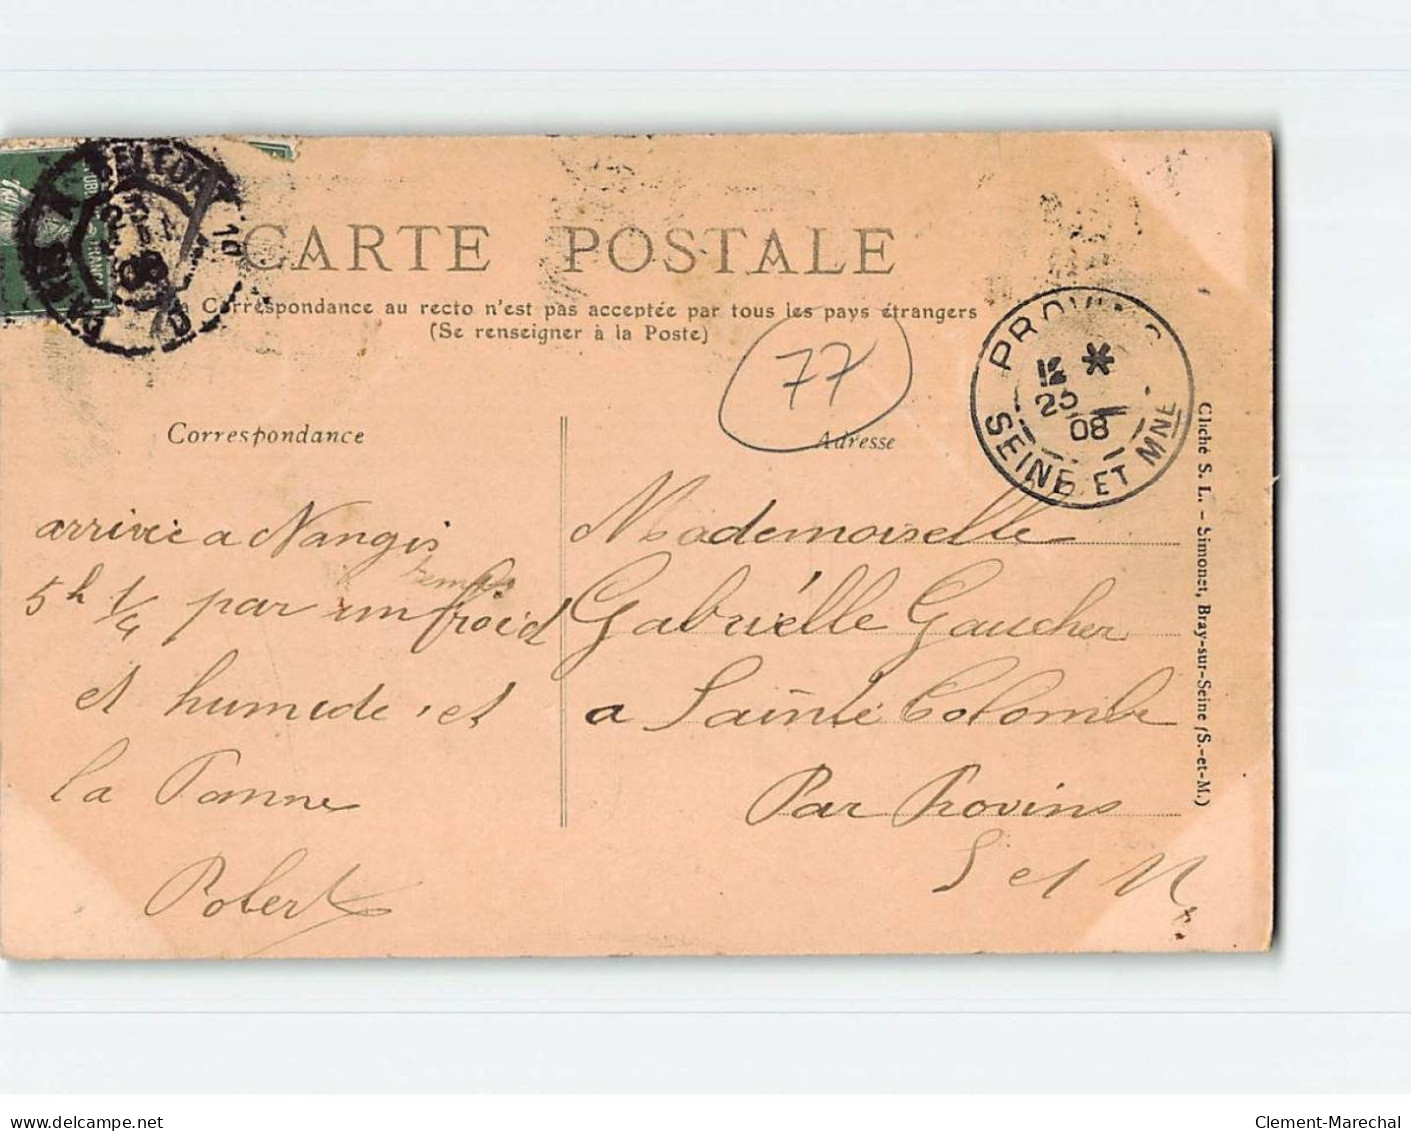 CARTE POSTALE
Correspondance au recto n'est pas acceptée par tous les pays étrangers
(Se renseigner à la Poste)
77
PROVINS
12 *
23
08
SEINE ET MNE
23
08
PARIS
Correspondance
Adresse
arrivée a Nangis
temps
5h 1/4 par un froid
et humide, et
la Panne
Robert
Mademoiselle
Gabrielle Gaucher
a Sainte Colombe
Par Provins
S et M
Cliché S. L. - Simonet, Bray-sur-Seine (S.-et-M.)
www.delcampe.net
Clement-Marechal